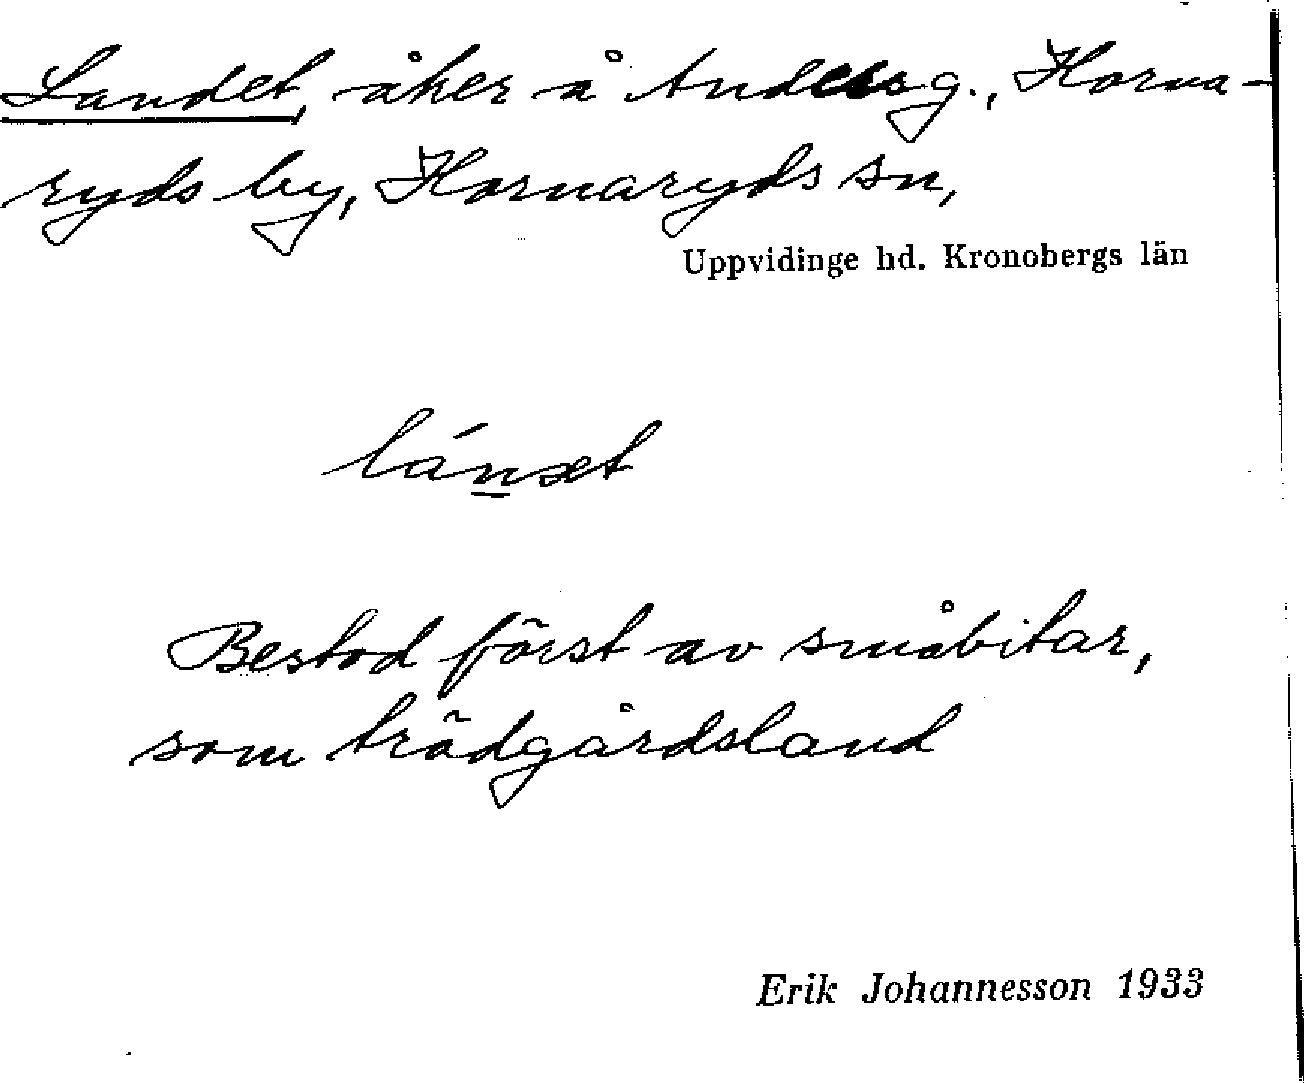 Landet, åker å Andersg., Horna-
ryds by, Hornaryds sn,
Uppvidinge hd. Kronobergs län
lánət
Bestod först av småbitar,
som trädgårdsland
Erik Johannesson 1933